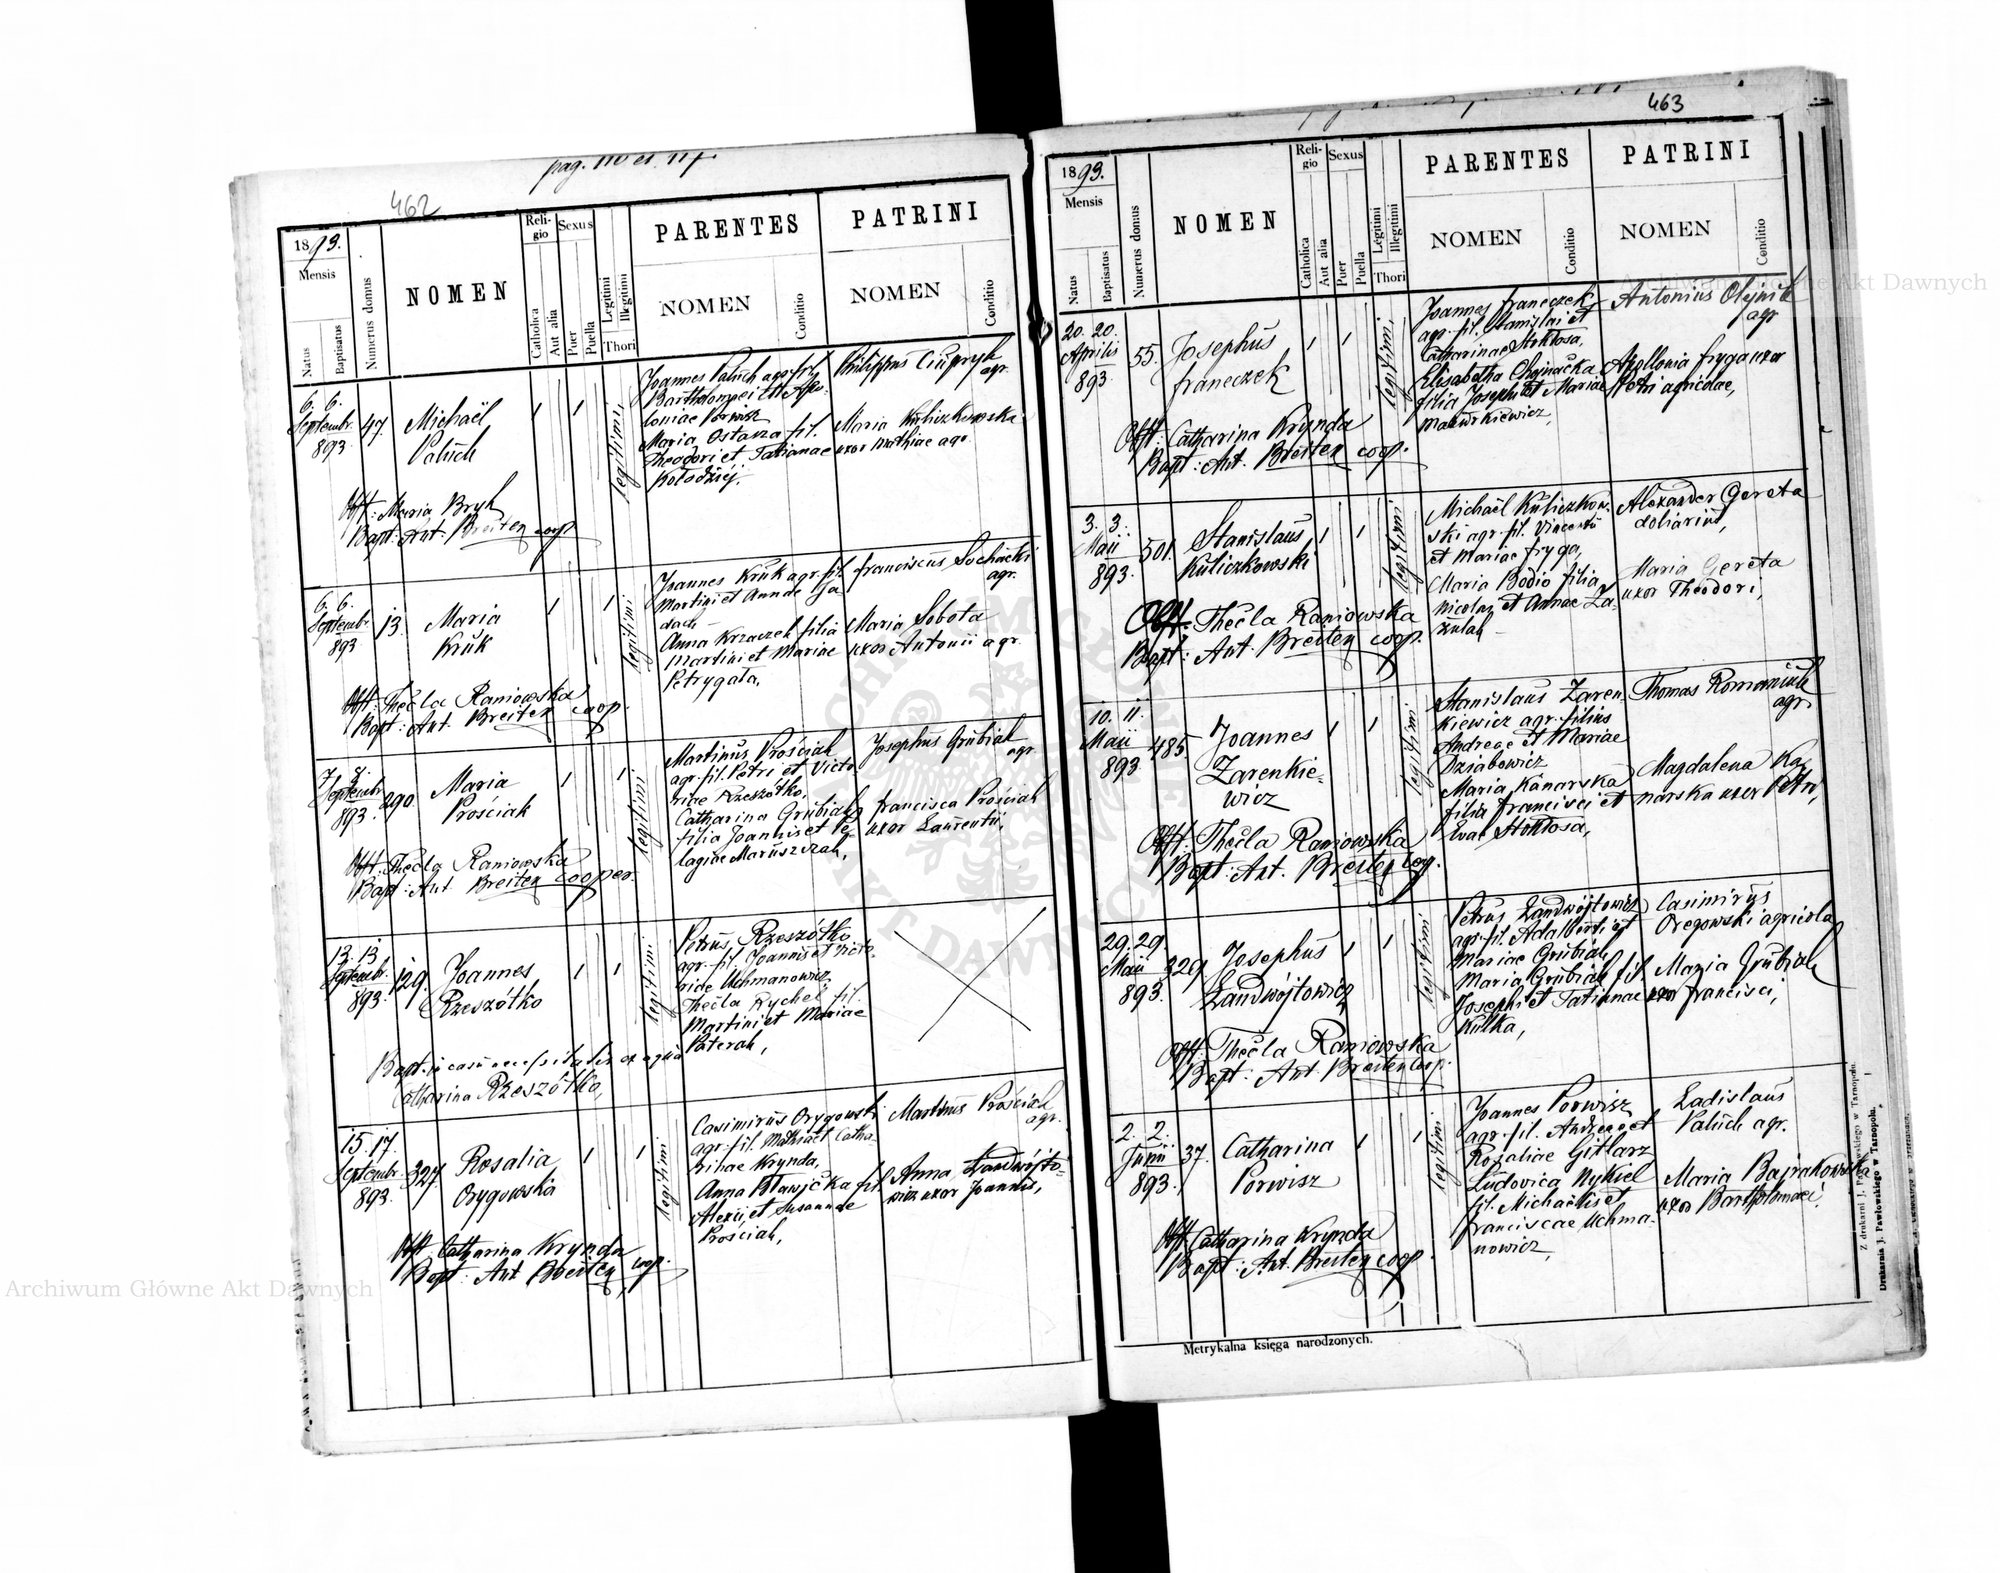 pag. 116 et 117
462
1893.
Mensis
Natus
Baptisatus
Numerus domus
NOMEN
Religio
Catholica
Aut alia
Sexus
Puer
Puella
Legitimi
Illegitimi
Thori
PARENTES
NOMEN
Conditio
PATRINI
NOMEN
Conditio
6. 6.
Septembr.
893.
47.
Michaël
Paluch
legitimi,
Joannes Paluch agr. fil.
Bartholomaei et Apo-
loniae Porwisz
Maria Ostasza fil.
Theodori et Tatianae
Kołodziej.
Philippus Ciupryk
agr.
Maria Kuliczkowska
uxor Mathiae agr.
Obst: Maria Bryk
Bapt: Ant. Breiten coop.
6. 6.
Septembr.
893
13.
Maria
Kruk
legitimi
Joannes Kruk agr. fil.
Martini et Annae Ga-
dach
Anna Krzaczek filia
Martini et Mariae
Petrygała,
Franciscus Sochacki
agr.
Maria Sobota
uxor Antonii agr.
Obst: Thecla Raniowska
Bapt: Ant. Breiten coop.
Septembr.
893.
290.
Maria
Prościak
legitimi
Martinus Prościak
agr. fil. Petri et Victo-
riae Rzeszótko,
Catharina Grubiak
filia Joannis et Pe-
lagiae Maruszczak,
Josephus Grubiak
agr.
Francisca Prościak
uxor Laurentii,
Obst: Thecla Raniowska
Bapt: Ant. Breiten cooper.
13. 13
Septembr.
893.
129.
Joannes
Rzeszótko
legitimi
Petrus Rzeszótko
agr. fil. Joannis et Victo-
riae Uchmanowicz,
Thecla Rychel fil.
Martini et Mariae
Paterak,
Bapt. in casu necessitatis ex aqua
Catharina Rzeszótko,
15. 17.
Septembr.
893.
327.
Rosalia
Orygowska
legitimi
Casimirus Orygowski
agr. fil. Mathiae et Catha-
rinae Krynda,
Anna Bławicka fil.
Alexii et Susannae
Prościak,
Martinus Prościak
agr.
Anna Landwójto-
wicz uxor Joannis,
Obst: Catharina Krynda
Bapt: Ant Breiten coop.
463
1893.
Mensis
Natus
Baptisatus
Numerus domus
NOMEN
Religio
Catholica
Aut alia
Sexus
Puer
Puella
Légitimi
Illegitimi
Thori
PARENTES
NOMEN
Conditio
PATRINI
NOMEN
Conditio
20. 20.
Aprilis
893.
55.
Josephus
Franeczek
legitimi,
Joannes Franeczek
agr. fil. Stanislai et
Catharinae Stokłosa,
Elisabetha Chojnacka
filia Josephi et Mariae
Mazurkiewicz,
Antonius Olejnik
agr
Apollonia Fryga uxor
Petri agricolae,
Obst: Catharina Krynda
Bapt: Ant. Breiten coop.
3. 3.
Maii
893.
501.
Stanislaus
Kuliczkowski
legitimi
Michaël Kuliczkow-
ski agr. fil. Vincentii
et Mariae Fryga,
Maria Bodio filia
Nicolai et Annae Za-
Alexander Gereta
doliarius,
Maria Gereta
uxor Theodori,
Obst: Thecla Raniowska
Bapt: Ant. Breiten coop.
10. 11.
Maii
893
485.
Joannes
Zarenkie-
wicz
legitimi
Stanislaus Zaren-
kiewicz agr. filius
Andreae et Mariae
Dziabowicz
Maria Kanarska
filia Francisci et
Evae Stokłosa,
Thomas Romaniuk
agr.
Magdalena Ka-
narska uxor Petri,
Obst: Thecla Raniowska
Bapt: Ant. Breiten coop.
29. 29.
Maii
893.
329.
Josephus
Landwójtowicz
legitimi
Petrus Landwójtowicz
agr. fil. Adalberti et
Mariae Grubiak,
Maria Grubiak fil.
Josephi et Tatianae
Kulka,
Casimirus
Oregowski agricola
Maria Grubiak
uxor Francisci,
Obst: Thecla Raniowska
Bapt: Ant. Breiten coop.
2. 2.
Junii
893.
37.
Catharina
Porwisz
legitimi
Joannes Porwisz
agr. fil. Andreae et
Rozaliae Gitlarz
Ludovica Nykiel
fil. Michaëlis et
Franciscae Uchma-
nowicz,
Ladislaus
Paluch agr.
Maria Bajrakowska
uxor Bartholomaei,
Obst: Catharina Krynda
Bapt: Ant. Breiten coop.
Metrykalna księga narodzonych.
Z drukarni J. Pawłowskiego w Tarnopolu.
Drukarnia J. Pawłowskiego w Tarnopolu.
Archiwum Główne Akt Dawnych
Archiwum Główne Akt Dawnych
ARCHIWUM GŁÓWNE AKT DAWNYCH